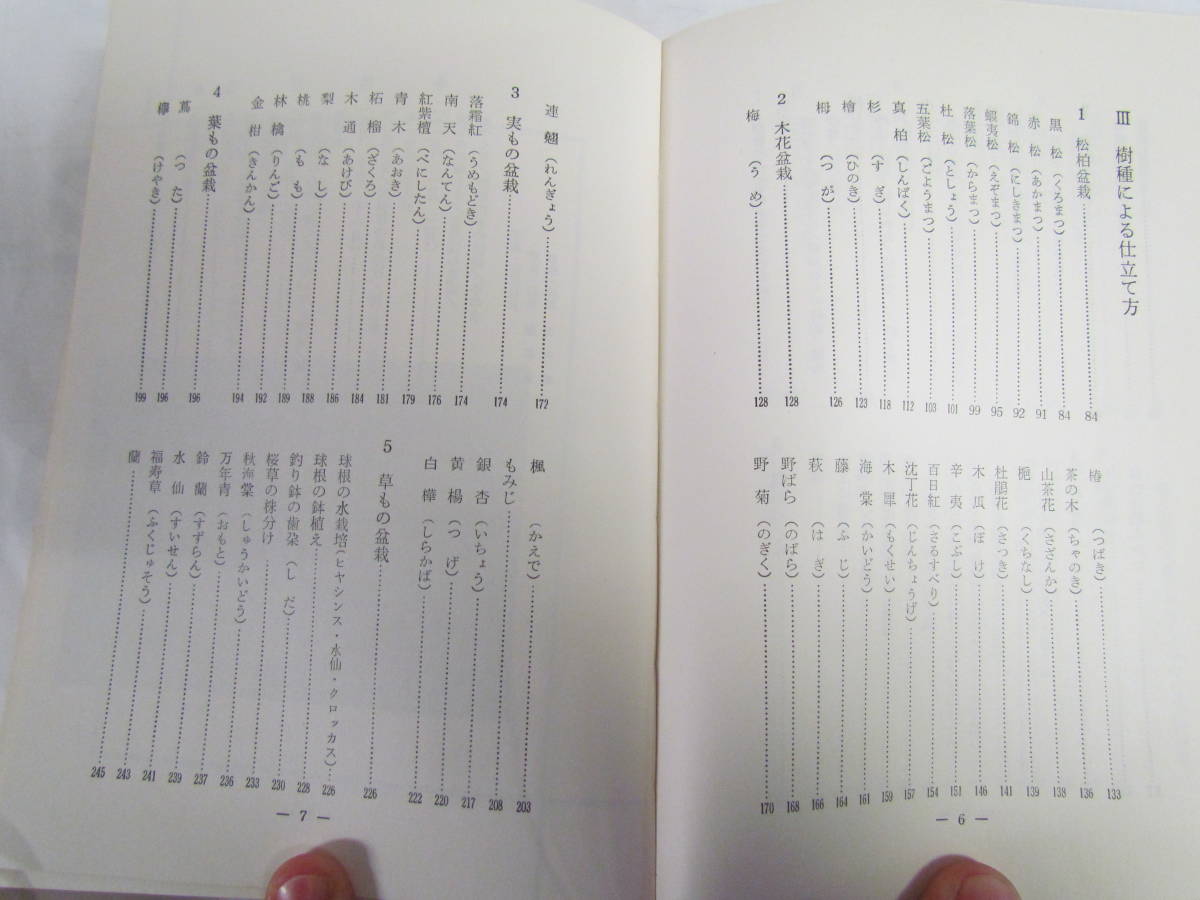 III 樹種による仕立て方
1 松柏盆栽……84
黒松（くろまつ）……84
赤松（あかまつ）……91
錦松（にしきまつ）……92
蝦夷松（えぞまつ）……95
落葉松（からまつ）……99
杜松（としょう）……101
五葉松（ごようまつ）……103
真柏（しんぱく）……112
杉（すぎ）……118
檜（ひのき）……123
栂（つが）……126
2 木花盆栽……128
梅（うめ）……128
椿（つばき）……133
茶の木（ちゃのき）……136
山茶花（さざんか）……138
梔（くちなし）……139
杜鵑花（さつき）……141
木瓜（ぼけ）……146
辛夷（こぶし）……151
百日紅（さるすべり）……154
沈丁花（じんちょうげ）……157
木犀（もくせい）……159
海棠（かいどう）……161
藤（ふじ）……164
萩（はぎ）……166
野ばら（のばら）……168
野菊（のぎく）……170
— 6 —
連翹（れんぎょう）……172
3 実もの盆栽……174
落霜紅（うめもどき）……174
南天（なんてん）……176
紅紫檀（べにしたん）……179
青木（あおき）……181
柘榴（ざくろ）……184
木通（あけび）……186
梨（なし）……188
桃（もも）……189
林檎（りんご）……192
金柑（きんかん）……194
4 葉もの盆栽……196
蔦（つた）……196
欅（けやき）……199
楓（かえで）……203
もみじ……208
銀杏（いちょう）……217
黄楊（つげ）……220
白樺（しらかば）……222
5 草もの盆栽……226
球根の水栽培（ヒヤシンス・水仙・クロッカス）……226
球根の鉢植え……228
釣り鉢の歯朶（しだ）……230
桜草の株分け……233
秋海棠（しゅうかいどう）……236
万年青（おもと）……237
鈴蘭（すずらん）……239
水仙（すいせん）……241
福寿草（ふくじゅそう）……243
蘭……245
— 7 —